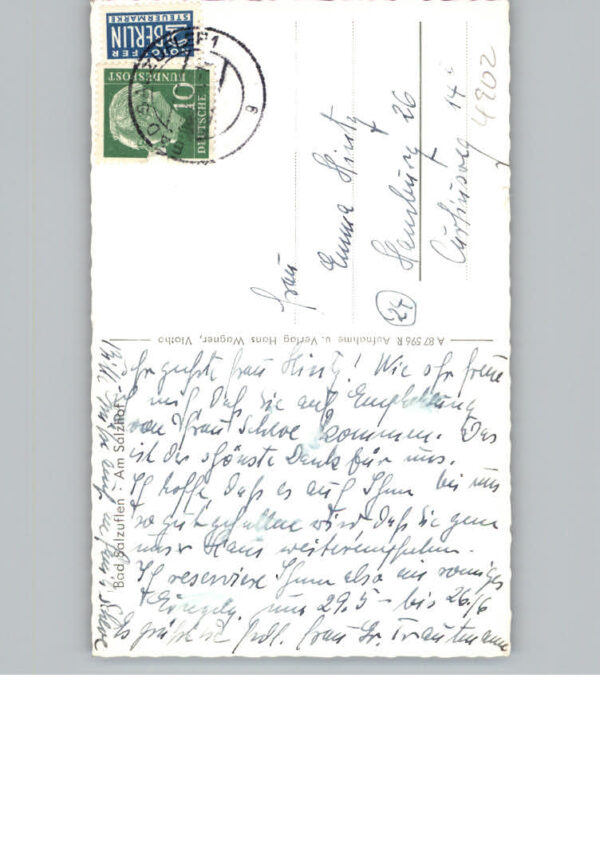 NOTOPFER
2 BERLIN
STEUERMARKE
DEUTSCHE
BUNDESPOST
10
Frau
Emma Hintz
(24) Hamburg 26
Curtiusweg 14
4902
A 87 596 R Aufnahme u. Verlag Hans Wagner, Vlotho
Bad Salzuflen - Am Salzhof
Sehr geehrte Frau Hintz! Wie sehr freue
ich mich daß Sie auf Empfehlung
von Frau kommen. Das
ist der schönste Dank für uns.
Ich hoffe, daß es auch Ihnen bei uns
so gut gefallen wird, daß Sie gern
unser Haus weiterempfehlen.
Ich reserviere Ihnen also ein sonniges
29.5 - bis 26./6
Es grüßt Sie Frau Gr. Trautmann
Bitte